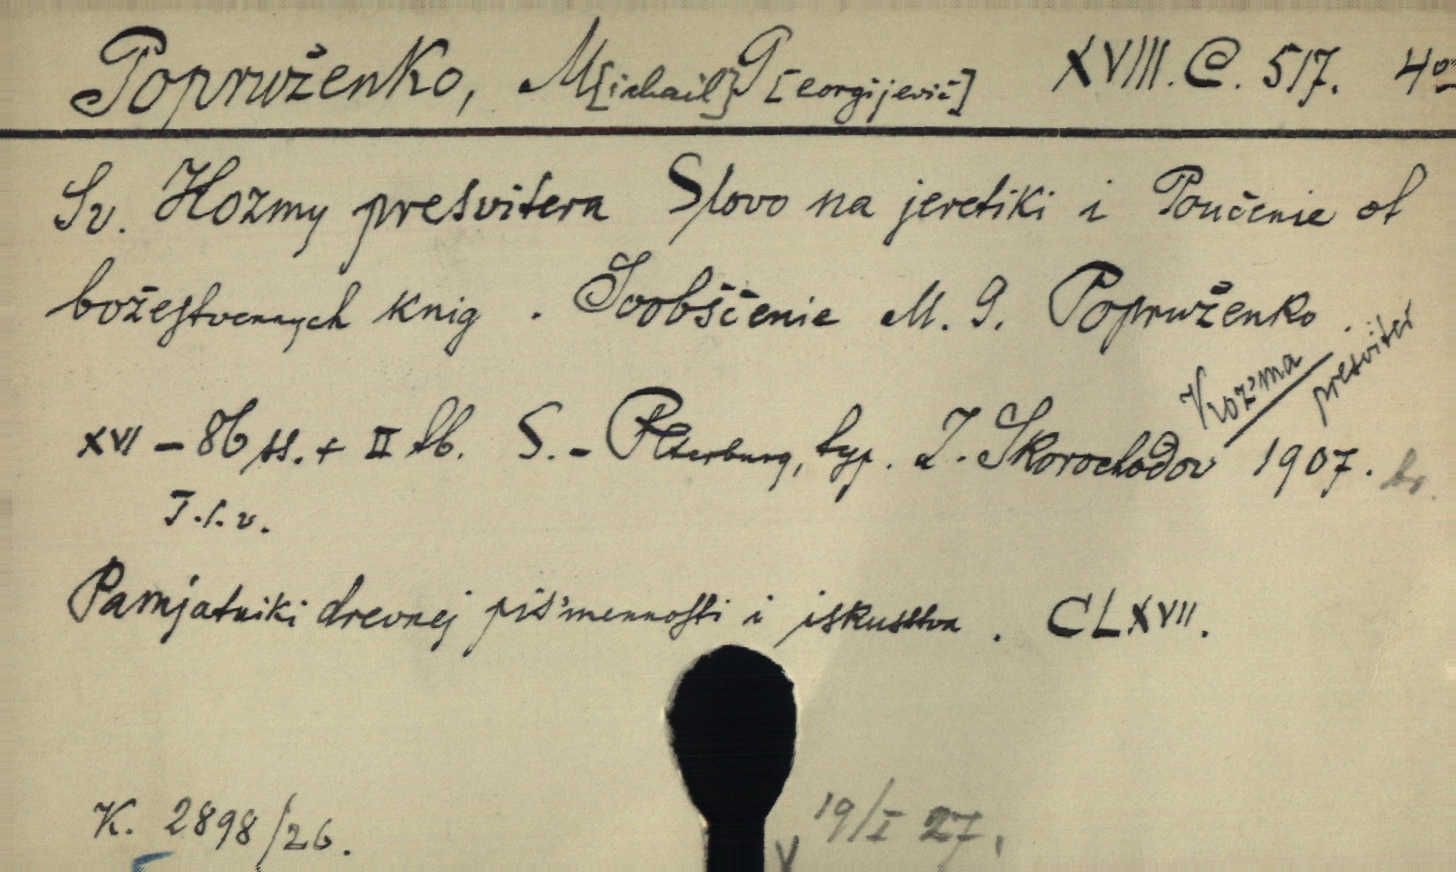 Popruženko, M[ichail] G[eorgijevič] XVIII. C. 517. 4º
Sv. Kozmy presvitera Slovo na jeretiki i Poučenie ot
božestvennych knig. Soobščenie M. G. Popruženko.
Koz'ma presviter
XVI – 86 ss. + II tb. S.-Peterburg, typ. I. Skorochodov 1907. br.
T.s.v.
Pamjatniki drevnej pis'mennosti i iskusstva. CLXVII.
K. 2898/26. 19/I 27.